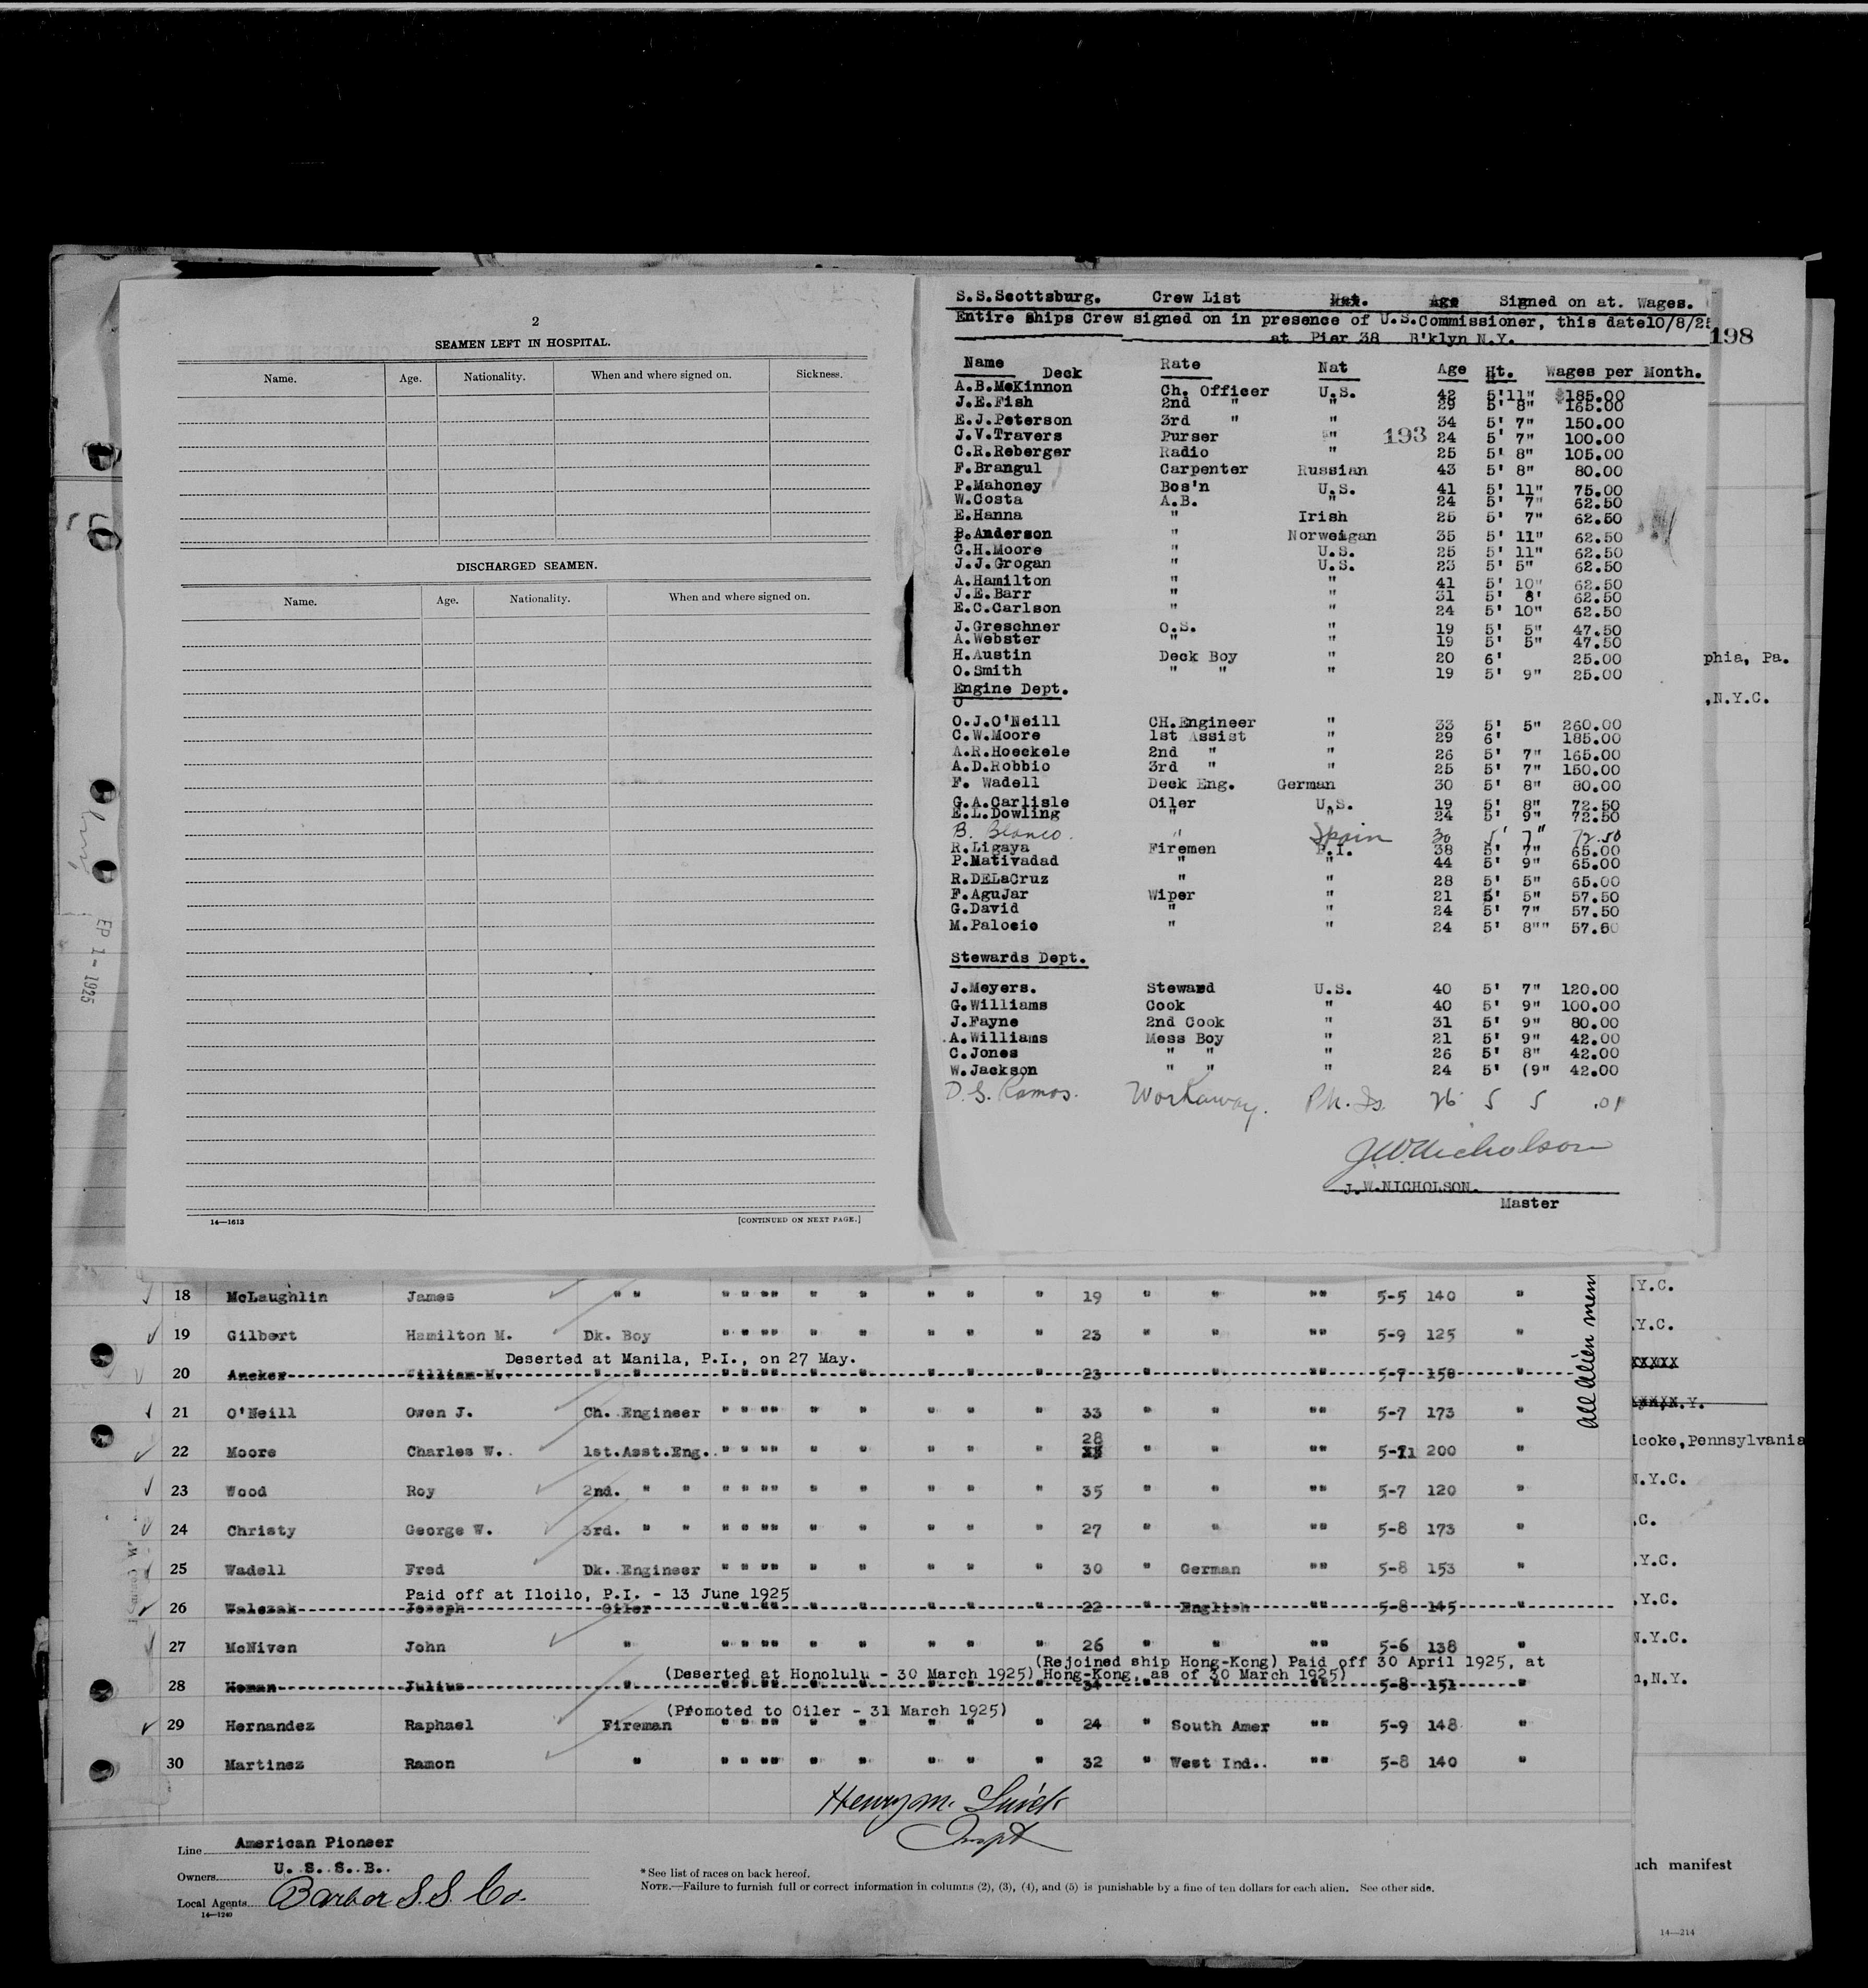 2
SEAMEN LEFT IN HOSPITAL.
Name. Age. Nationality. When and where signed on. Sickness.
DISCHARGED SEAMEN.
Name. Age. Nationality. When and where signed on.
14—1613 [CONTINUED ON NEXT PAGE.]
EP 1 - 1925
S.S.Scottsburg. Crew List Nat. Age Signed on at. Wages.
Entire Ships Crew signed on in presence of U.S.Commissioner, this date10/8/25
198
at Pier 38 B'klyn N.Y.
Name Deck Rate Nat Age Ht. Wages per Month.
A.B.McKinnon Ch. Officer U.S. 42 5'11" $185.00
J.E.Fish 2nd " " 29 5' 8" 165.00
E.J.Peterson 3rd " " 34 5' 7" 150.00
J.V.Travers Purser " 193 24 5' 7" 100.00
C.R.Reberger Radio " 25 5' 8" 105.00
F.Brangul Carpenter Russian 43 5' 8" 80.00
P.Mahoney Bos'n U.S. 41 5' 11" 75.00
W.Costa A.B. " 24 5' 7" 62.50
E.Hanna " Irish 25 5' 7" 62.50
P.Anderson " Norweigan 35 5' 11" 62.50
G.H.Moore " U.S. 25 5' 11" 62.50
J.J.Grogan " U.S. 23 5' 5" 62.50
A.Hamilton " " 41 5' 10" 62.50
J.E.Barr " " 31 5' 8' 62.50
E.C.Carlson " " 24 5' 10" 62.50
J.Greschner O.S. " 19 5' 5" 47.50
A.Webster " " 19 5' 5" 47.50
H.Austin Deck Boy " 20 6' 25.00
O.Smith " " " 19 5' 9" 25.00
phia, Pa.
Engine Dept.
O
,N.Y.C.
O.J.O'Neill CH.Engineer " 33 5' 5" 260.00
C.W.Moore 1st Assist " 29 6' 185.00
A.R.Hoeckele 2nd " " 26 5' 7" 165.00
A.D.Robbio 3rd " " 25 5' 7" 150.00
F. Wadell Deck Eng. German 30 5' 8" 80.00
G.A.Carlisle Oiler U.S. 19 5' 8" 72.50
E.L.Dowling " " 24 5' 9" 72.50
B. Blanco. " Spain 30 5' 7" 72.50
R.Ligaya Firemen P.I. 38 5' 7" 65.00
P.Mativadad " " 44 5' 9" 65.00
R.DELaCruz " " 28 5' 5" 65.00
F.AguJar Wiper " 21 5' 5" 57.50
G.David " " 24 5' 7" 57.50
M.Palocio " " 24 5' 8"" 57.50
Stewards Dept.
J.Meyers. Steward U.S. 40 5' 7" 120.00
G.Williams Cook " 40 5' 9" 100.00
J.Fayne 2nd Cook " 31 5' 9" 80.00
A.Williams Mess Boy " 21 5' 9" 42.00
C.Jones " " " 26 5' 8" 42.00
W.Jackson " " " 24 5' (9" 42.00
D.G. Ramos. Workaway. Ph. Is. 26 5 5 .01
J.W.Nicholson
J.W.NICHOLSON.
Master
18 McLaughlin James " " " " "" " " " " " 19 " " "" 5-5 140 " .Y.C.
19 Gilbert Hamilton M. Dk. Boy " " "" " " " " " 23 " " "" 5-9 125 " .Y.C.
Deserted at Manila, P.I., on 27 May.
20 Ancker William M. " " " " "" " " " " " 23 " " "" 5-7 158 " XXXXX
21 O'Neill Owen J. Ch. Engineer " " "" " " " " " 33 " " "" 5-7 173 " N.Y.
28
22 Moore Charles W. 1st.Asst.Eng. " " "" " " " " " " " "" 5-11 200 " icoke,Pennsylvania
23 Wood Roy 2nd. " " " " "" " " " " " 35 " " "" 5-7 120 " N.Y.C.
24 Christy George W. 3rd. " " " " "" " " " " " 27 " " "" 5-8 173 " .C.
25 Wadell Fred Dk. Engineer " " "" " " " " " 30 " German "" 5-8 153 " .Y.C.
Paid off at Iloilo, P.I. - 13 June 1925
26 Walczak Joseph Oiler " " "" " " " " " 22 " English "" 5-8 145 " .Y.C.
27 McNiven John " " " "" " " " " " 26 " " "" 5-6 138 " N.Y.C.
(Rejoined ship Hong-Kong) Paid off 30 April 1925, at
(Deserted at Honolulu - 30 March 1925) Hong-Kong, as of 30 March 1925)
28 Homan Julius " " " "" " " " " " 34 " " "" 5-8 151 " n,N.Y.
(Promoted to Oiler - 31 March 1925)
29 Hernandez Raphael Fireman " " "" " " " " " 24 " South Amer "" 5-9 148 "
30 Martinez Ramon " " " "" " " " " " 32 " West Ind.. "" 5-8 140 "
All Alien mem
Henry M.
Inspt
Line American Pioneer
Owners U. S. S. B.
Local Agents Barber S.S. Co.
14—1240
*See list of races on back hereof.
NOTE.—Failure to furnish full or correct information in columns (2), (3), (4), and (5) is punishable by a fine of ten dollars for each alien. See other side.
uch manifest
14—214